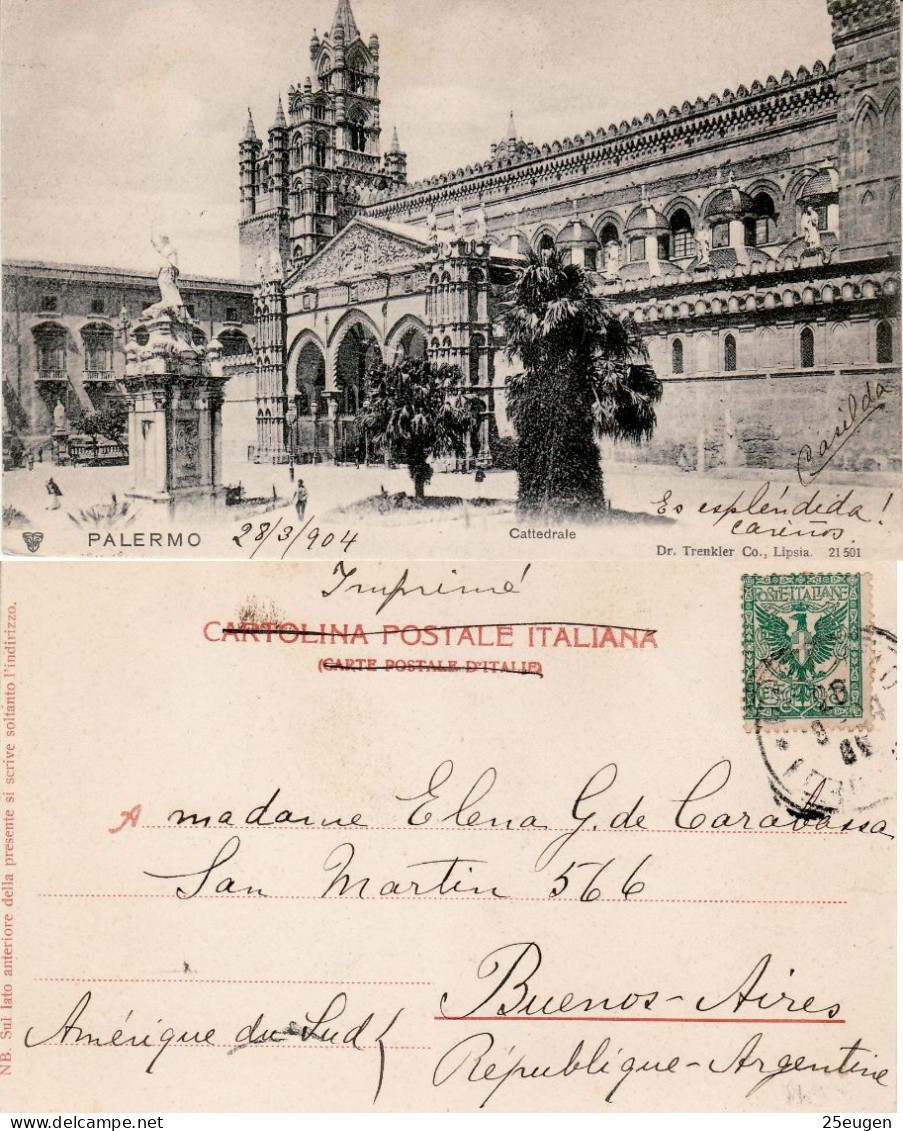 Casilda
Es espléndida!
Cariños.
PALERMO
28/3/904
Cattedrale
Dr. Trenkler Co., Lipsia. 21501
Imprimé
CARTOLINA POSTALE ITALIANA
(CARTE POSTALE D'ITALIE)
POSTE ITALIANE
NB. Sul lato anteriore della presente si scrive soltanto l'indirizzo.
A madame Elena G. de Carabassa
San Martin 566
Buenos-Aires
Amérique du Sud
République-Argentine
25eugen
delcampe.net